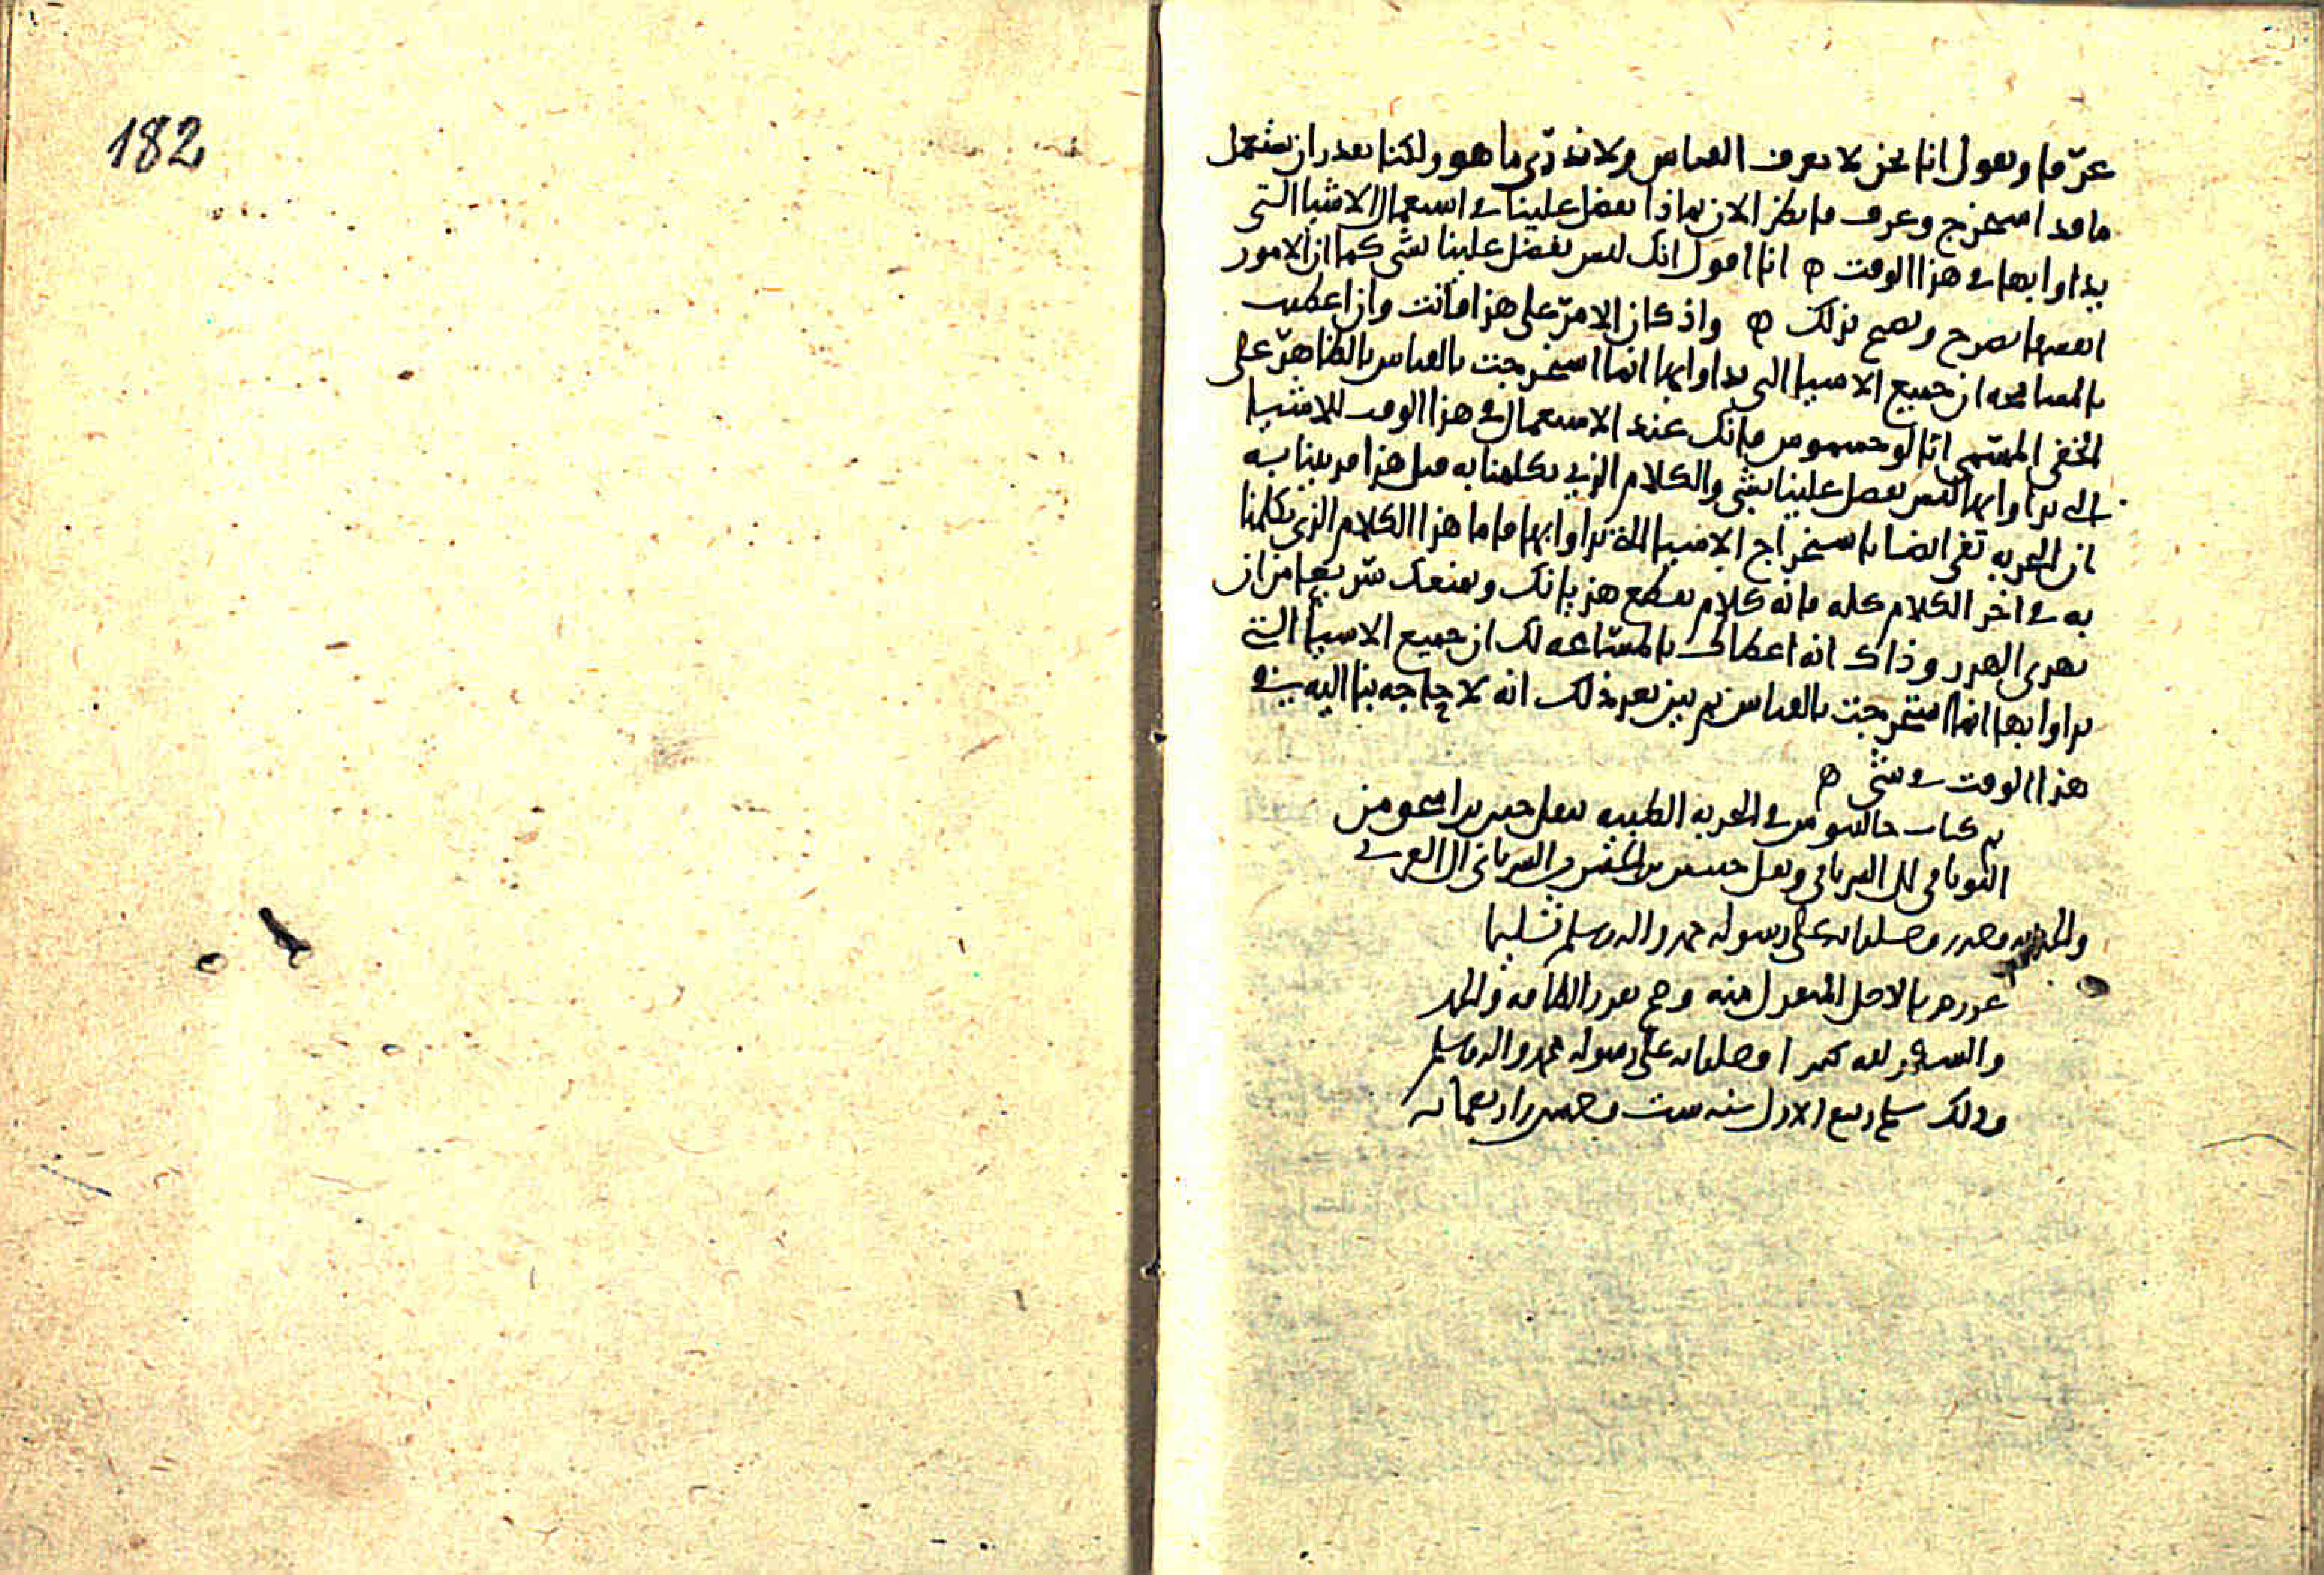 182
عرّفا ونقول انا نحن لا نعرف القياس ولا ندري ما هو ولكنا نقدر ان نستعمل
ما قد استخرج وعرف فانظر الان بماذا تفضل علينا في استعمال الاشيا التي
يداوا بها في هذا الوقت ه انا اقول انك ليس تفضل علينا بشي كما ان الامور
انفسها تصرح وتصيح بذلك ه واذ كان الامر على هذا فانت وان اعطيت
بالمسامحه ان جميع الاشيا التي يداوا بها انما استخرجت بالقياس بالظاهر على
الخفي المسمى انالوجسموس فانك عند الاستعمال في هذا الوقت للاشيا
التي يداوا بها ليس تفضل علينا بشي والكلام الذي تكلمنا به قبل هذا قد بينا به
ان التجربه تفي ايضا باستخراج الاشيا التي يداوا بها فاما هذا الكلام الذي تكلمنا
به في اخر الكلام كله فانه كلام يقطع هذيانك ويمنعك سريعا من ان
تهدي الهدر وذاك انه اعطاك بالمسامحه لك ان جميع الاشيا التي
يداوا بها انما استخرجت بالقياس ثم بين بعد ذلك انه لا حاجه بنا اليه في
هذا الوقت في شي ه
تم كتاب جالينوس في التجربه الطبيه نقل حنين بن اسحق من
اليوناني الى السرياني ونقل حبيش من السرياني الى العربي
والحمد لله وصلواته على رسوله محمد واله وسلم تسليما
بالاصل المنقول منه وصح بقدر الطاقه والحمد
والشكر لله كثيرا وصلواته على رسوله محمد واله وسلم
وذلك سلخ ربيع الاول سنه ست واربعمائه